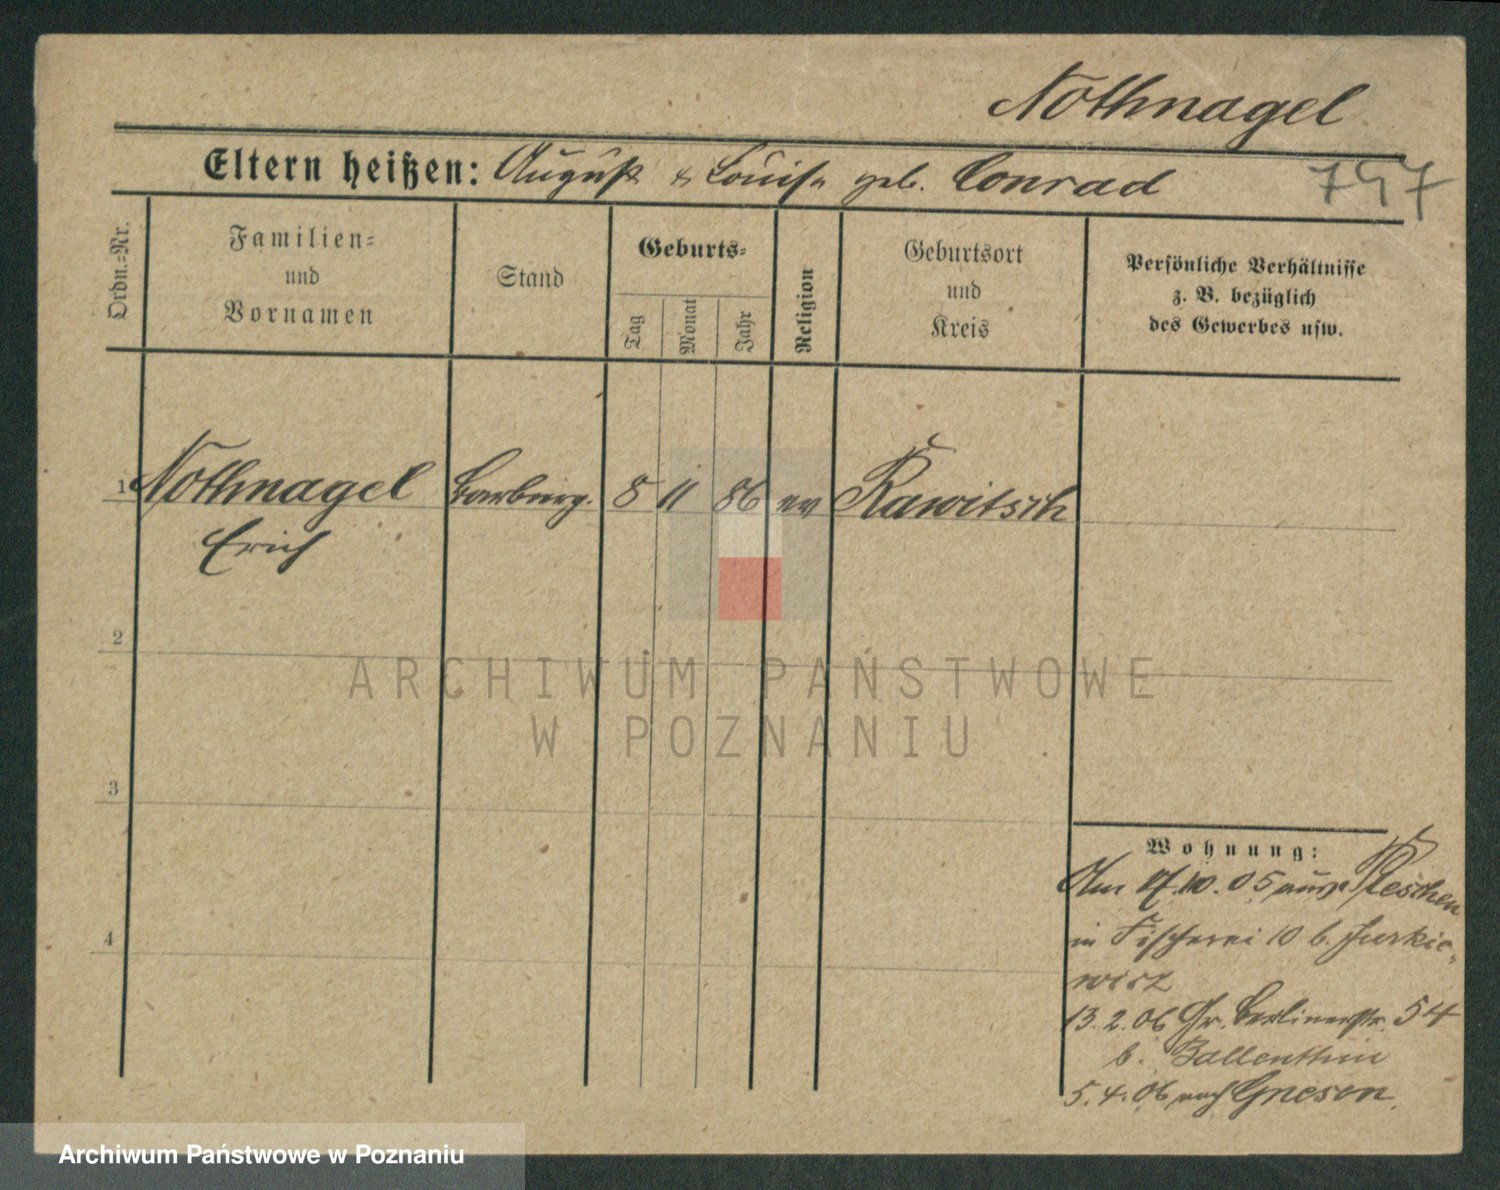 Nothnagel
Eltern heißen: August & Louise geb. Conrad
747
Ordn.=Nr.
Familien=
und
Vornamen
Stand
Geburts=
Tag
Monat
Jahr
Religion
Geburtsort
und
Kreis
Persönliche Verhältnisse
z. B. bezüglich
des Gewerbes usw.
1 Nothnagel 8 11 86 ev Rawitsch
Erich
2
3
4
Wohnung:
Am 17.10.05 aus Pleschen
in Fischerei 10 b. Jurkie-
wicz
13.2.06 Gr. Berlinerstr. 54
b. Ballenthin
5.4.06 nach Gnesen.
ARCHIWUM PAŃSTWOWE
W POZNANIU
Archiwum Państwowe w Poznaniu